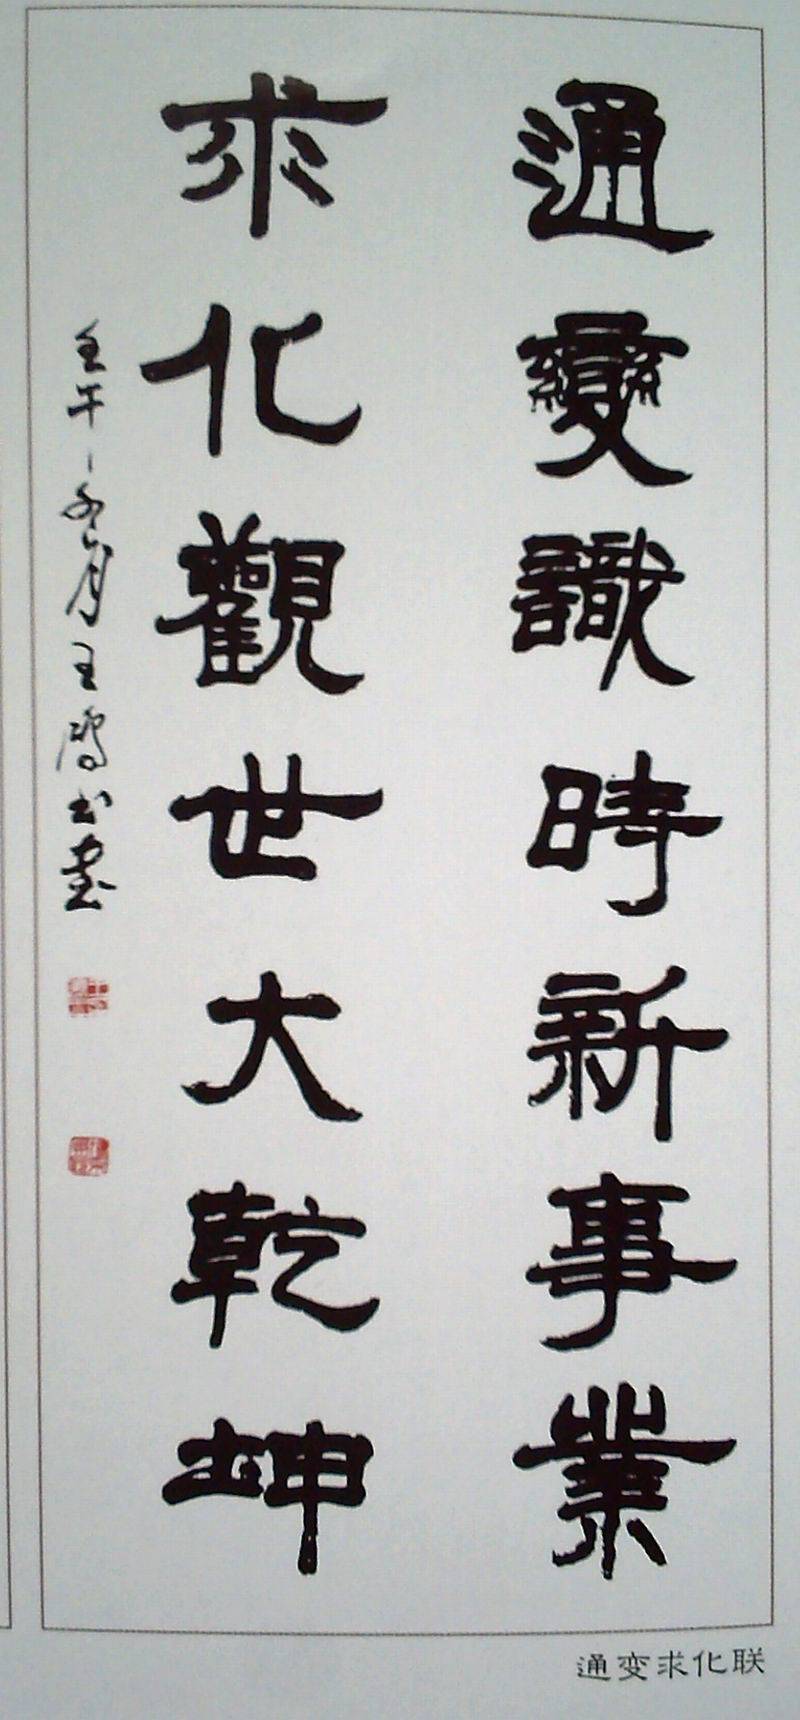 通變識時新事業
求化觀世大乾坤
壬午
月王
书
通变求化联